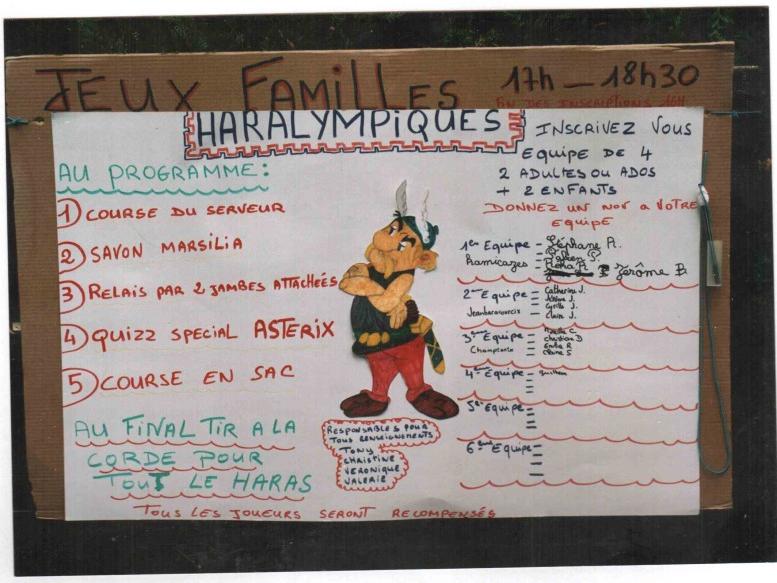 JEUX FAMILLES 17h — 18h30
FIN DES INSCRIPTIONS 16H
HARALYMPIQUES
AU PROGRAMME:
1) COURSE DU SERVEUR
2) SAVON MARSILIA
3) RELAIS PAR 2 JAMBES ATTACHÉES
4) QUIZZ SPECIAL ASTERIX
5) COURSE EN SAC
AU FINAL TIR A LA
CORDE POUR
TOUT LE HARAS
RESPONSABLES POUR
TOUS RENSEIGNEMENTS
TONY
CHRISTINE
VERONIQUE
VALERIE
INSCRIVEZ VOUS
EQUIPE DE 4
2 ADULTES OU ADOS
+ 2 ENFANTS
DONNEZ UN NOM A VOTRE
EQUIPE
1ère Equipe - Stéphane A.
Jérôme B
2ème Equipe - Catherine J.
Jérôme J.
Cyrille J.
Claire J.
3ème Equipe
Christian D
Claire S
4ème Equipe
5ème Equipe
6ème Equipe
TOUS LES JOUEURS SERONT RECOMPENSÉS